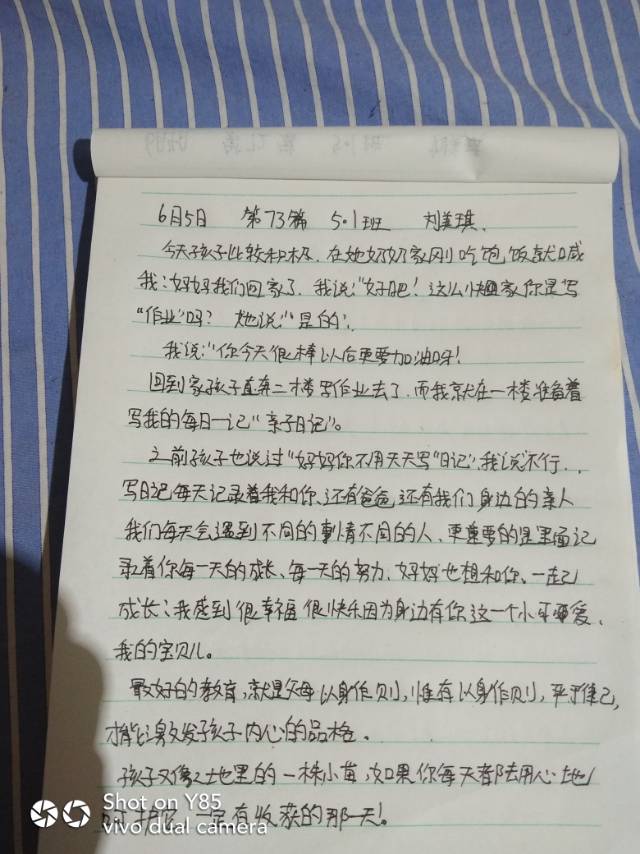 6月5日 第73篇 5.1班 刘美琪.
今天孩子比较积极.在她奶奶家刚吃饱饭就喊
我:妈妈我们回家了.我说:"好吧!这么快回家你是写
"作业"吗? 她说:"是的".
我说:"你今天很棒以后更要加油呀!
回到家孩子直奔二楼写作业去了.而我就在一楼准备着
写我的每日一记"亲子日记"。
之前孩子也说过"妈妈你不用天天写"日记".我说"不行..
写日记每天记录着我和你、还有爸爸还有我们身边的亲人
我们每天会遇到不同的事情不同的人、更重要的是里面记
录着你每一天的成长、每一天的努力.妈妈也想和你、一起
成长;我感到很幸福很快乐因为身边有你这一个小可爱、
我的宝贝儿。
最好的教育,就是父母以身作则,惟有以身作则,严于律己,
才能激发孩子内心的品格。
孩子又像土地里的一株小苗,如果你每天都去用心地
呵护它 一定有收获的那一天!
Shot on Y85
vivo dual camera